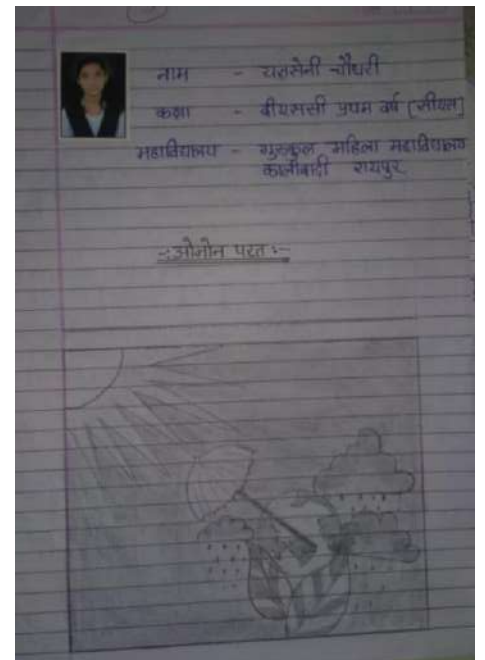 नाम - यज्ञसेनी चौधरी
कक्षा - बीएससी प्रथम वर्ष [सीएस]
महाविद्यालय - गुरुकुल महिला महाविद्यालय
कालीबाड़ी रायपुर
-: ओजोन परत :-